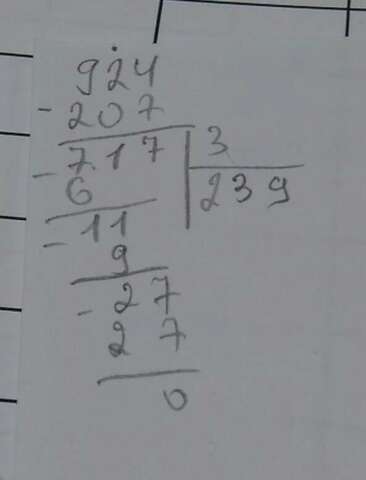 924
- 207
- 717 3
6 239
- 11
9
- 27
27
0